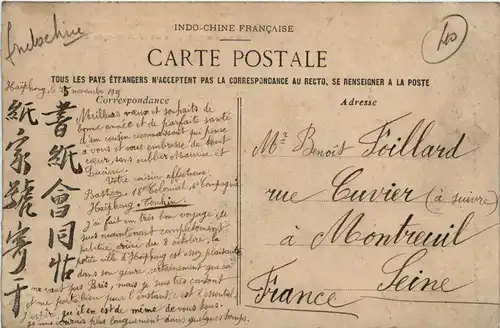 Indochine
40
INDO-CHINE FRANÇAISE
CARTE POSTALE
TOUS LES PAYS ÉTRANGERS N'ACCEPTENT PAS LA CORRESPONDANCE AU RECTO, SE RENSEIGNER A LA POSTE
Correspondance
Adresse
Haïphong, le 25 novembre
Meilleurs vœux et souhaits de
bonne année et de parfaite santé
d'un cousin reconnaissant qui pense
à vous et vous embrasse de tout
cœur, sans oublier Maurice et
Lucien.
Votre cousin affectueux
Bastien, 18e Colonial, Compagnie
Haïphong - Tonkin
J'ai fait un très bon voyage, je
suis maintenant complètement
habitué, arrivé du 8 octobre, la
petite ville d'Haïphong est assez plaisante
dans son genre, certainement que ça
ne vaut pas Paris, mais je suis très content
et me porte bien pour l'instant, c'est l'essentiel
qu'il en est de même de vous tous.
plus longuement dans quelques temps.
書紙會同帖
紙家號寄于
Mr Benoit Foillard
rue Cuvier (à suivre)
à Montreuil
Seine
France